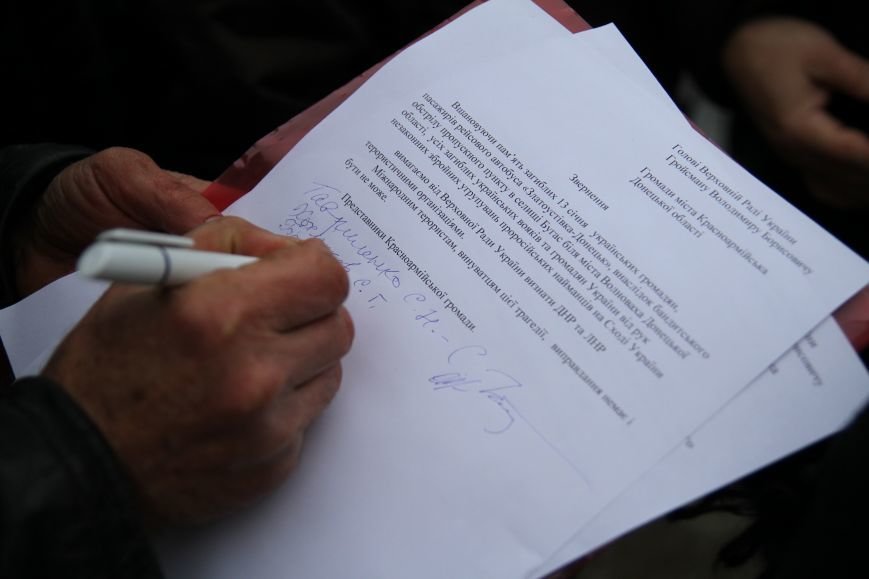 Голові Верховній Раді України
Гройсману Володимиру Борисовичу
Громади міста Красноармійська
Донецької області
Звернення
Вшановуючи пам`ять загиблих 13 січня українських громадян,
пасажирів рейсового автобуса «Златоустівка-Донецьк», внаслідок бандитського
обстрілу пропускного пункту в селищі Бугас біля міста Волноваха Донецької
області, усіх загиблих українських вояків та громадян України від рук
незаконних збройних угрупувань проросійських найманців на Сході України
вимагаємо від Верховної Ради України визнати ДНР та ЛНР
терористичними організаціями.
Міжнародним терористам, винуватцям цієї трагедії, виправдання немає і
бути не може.
Представники Красноармійської громади.
С. Н. –
С. Г,